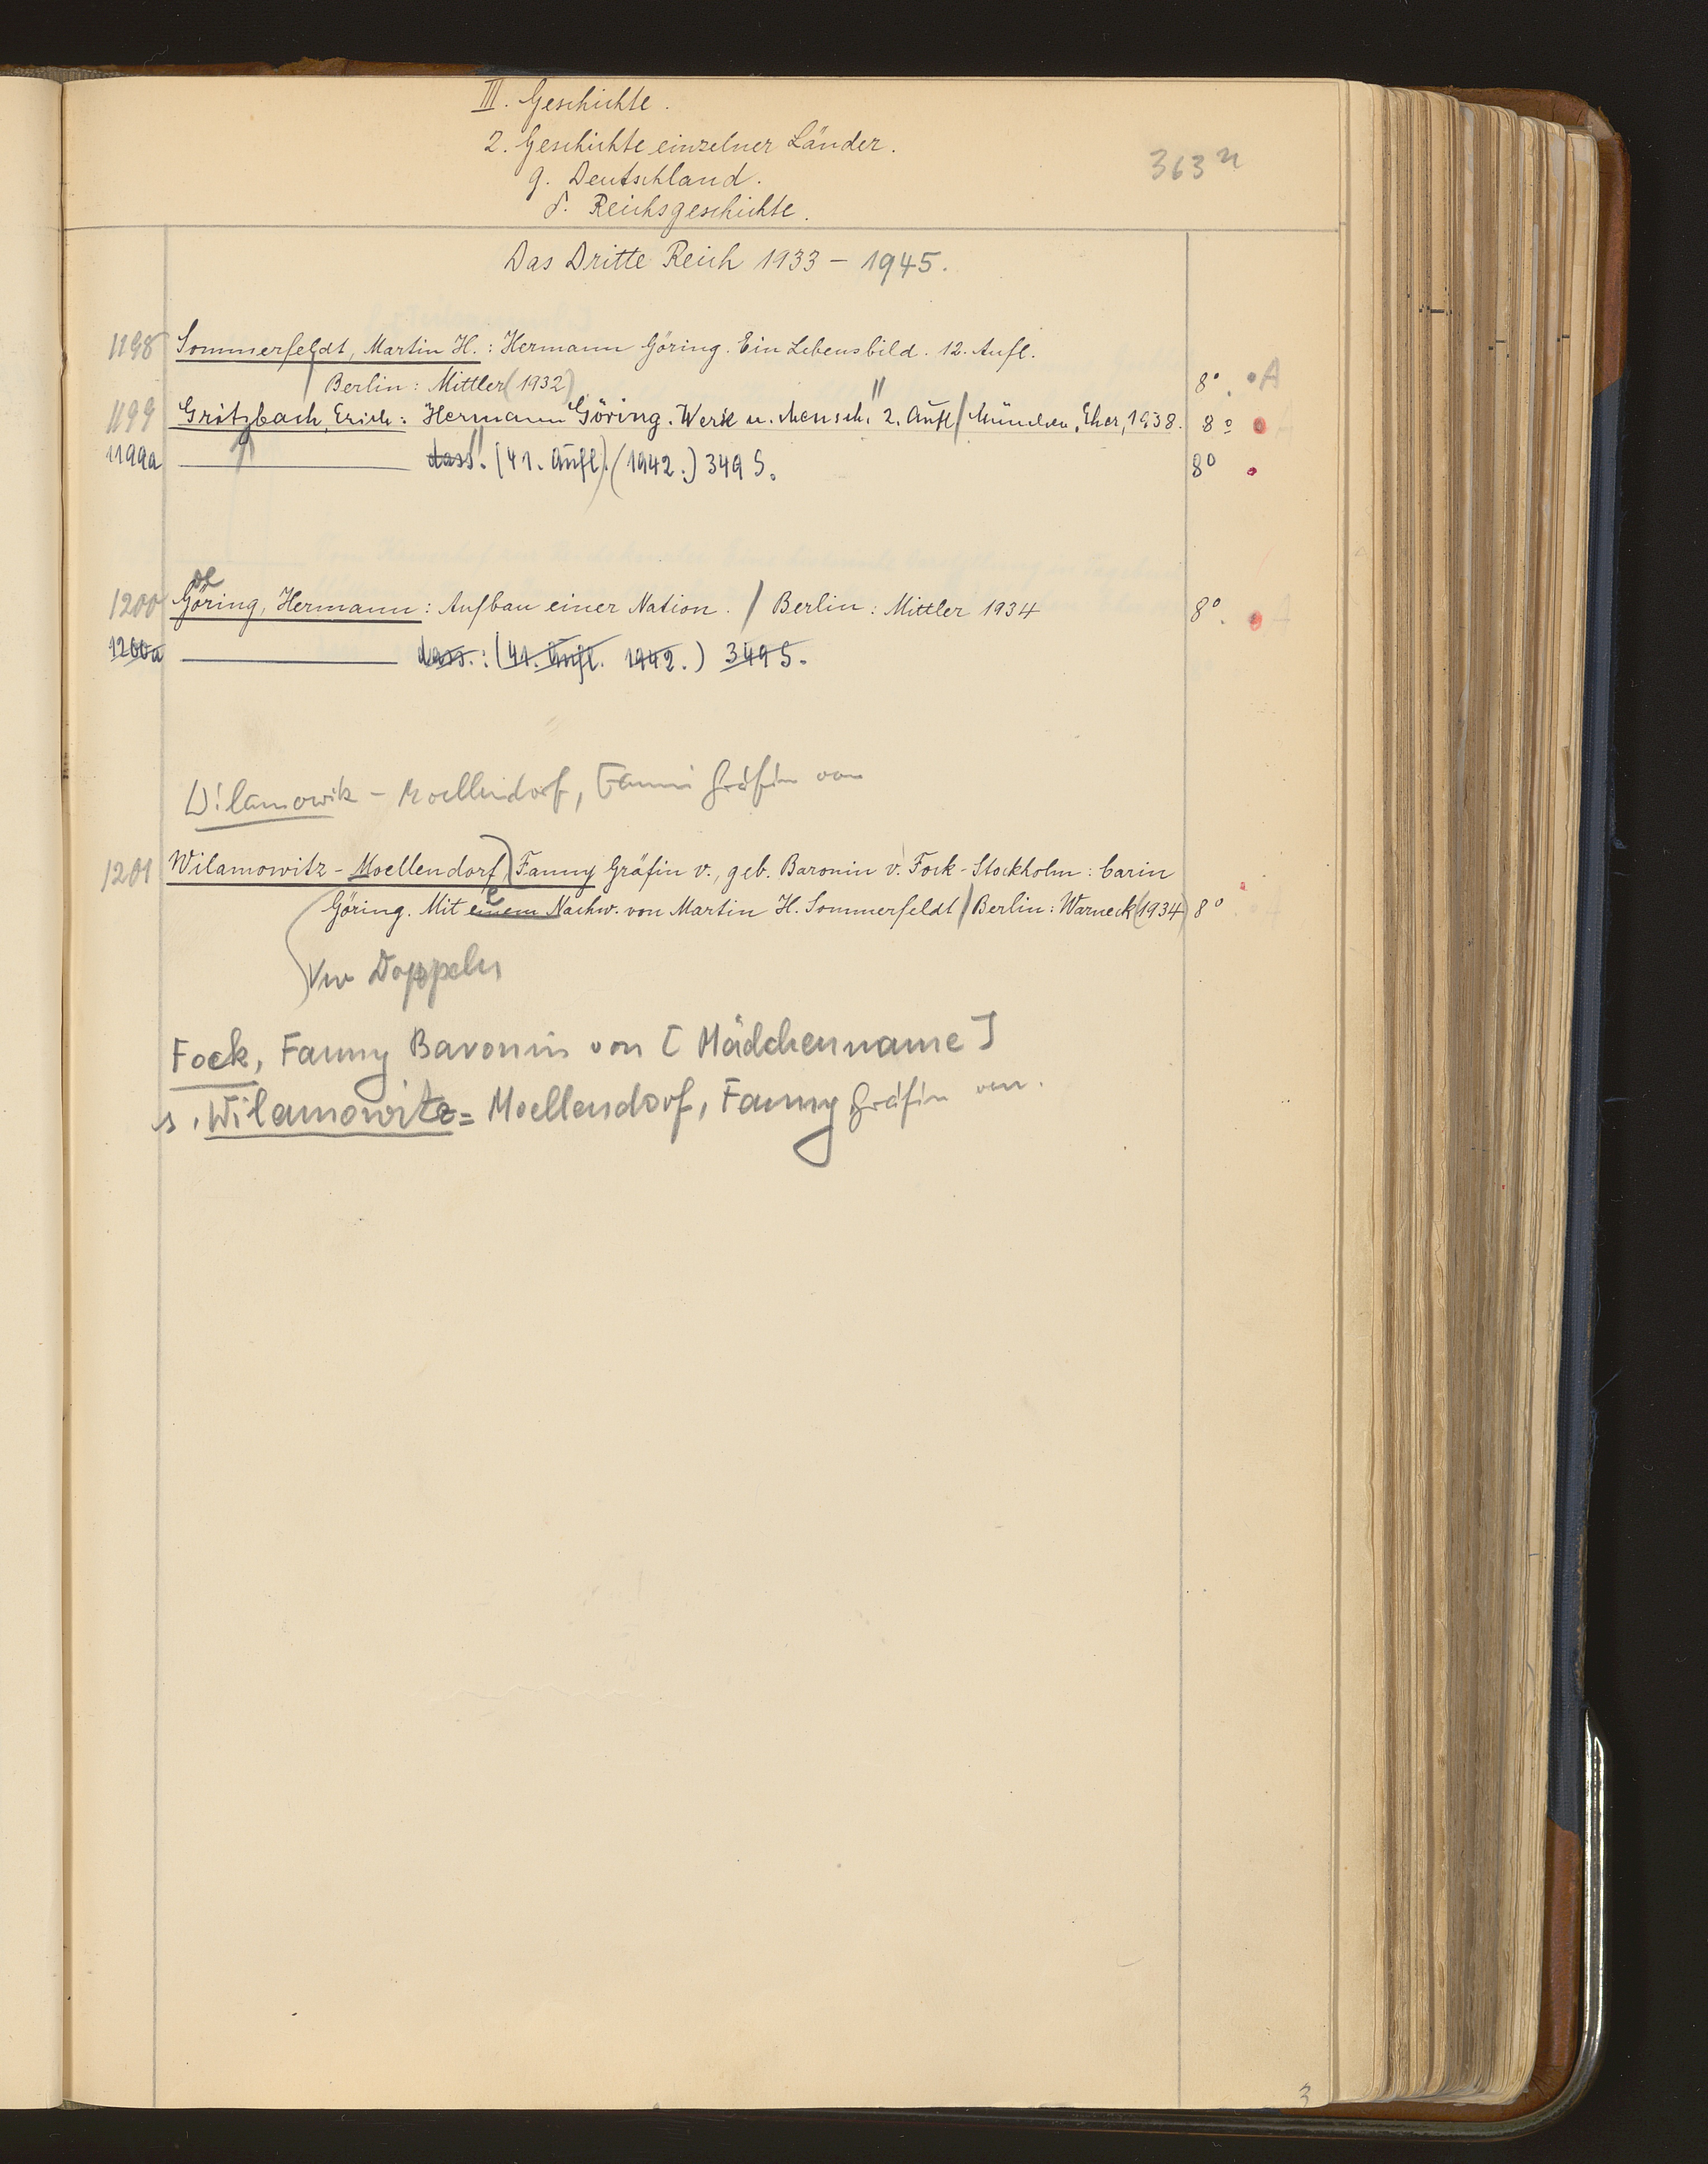 III. Geschichte.
2. Geschichte einzelner Länder.
g. Deutschland.
δ. Reichsgeschichte.
363 n
Das Dritte Reich 1933 - 1945.
1198 Sommerfeldt, Martin H.: Hermann Göring. Ein Lebensbild. 12. Aufl.
/ Berlin: Mittler (1932) 8°. • A
1199 Gritzbach, Erich: Hermann Göring. Werk u. Mensch. " 2. Aufl / München, Eher, 1938. 8°
1199a ——— dass. " (41. Aufl.) (1942.) 349 S. 8°
oe
1200 Göring, Hermann: Aufbau einer Nation. / Berlin: Mittler 1934 8°.
1200a ——— dass.: (41. Aufl. 1942.) 349 S.
Wilamowitz - Moellendorf, Fanni Gräfin von
1201 Wilamowitz - Moellendorf, Fanny Gräfin v., geb. Baronin v. Fock - Stockholm: Carin
Göring. Mit einem Nachw. von Martin H. Sommerfeldt / Berlin: Warneck (1934) 8°
Doppeln
Fock, Fanny Baronin von [Mädchenname]
s. Wilamowitz = Moellendorf, Fanny Gräfin von.
3